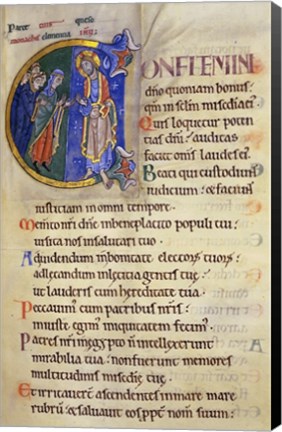 Parce tuis queso
monachis clementia ihu
CONFITEMINI
dño quoniam bonus:
qm̄ in sclm̄ misericdia ei'
Quis loquetur poten
tias dñi: auditas
faciet omnis laudes ei'
Beati qui custodiunt
iudicium: & faciunt
iusticiam in omni tempore.
Memento nr̄i dñe in beneplacito populi tui:
uisita nos in salutari tuo.
Ad uidendum in bonitate electorū tuorū:
ad letandum in leticia gentis tue
ut lauderis cum hereditate tua.
Peccauimus cum patribus nr̄is:
iniuste egim' iniquitatem fecim'.
Patres nr̄i in egypto n̄ intellexerunt
mirabilia tua: non fuerunt memores
multitudinis misericdie tue.
Et irritauerunt ascendentes in mare mare
rubrū: & saluauit eos ppt̄ nom̄ suum: